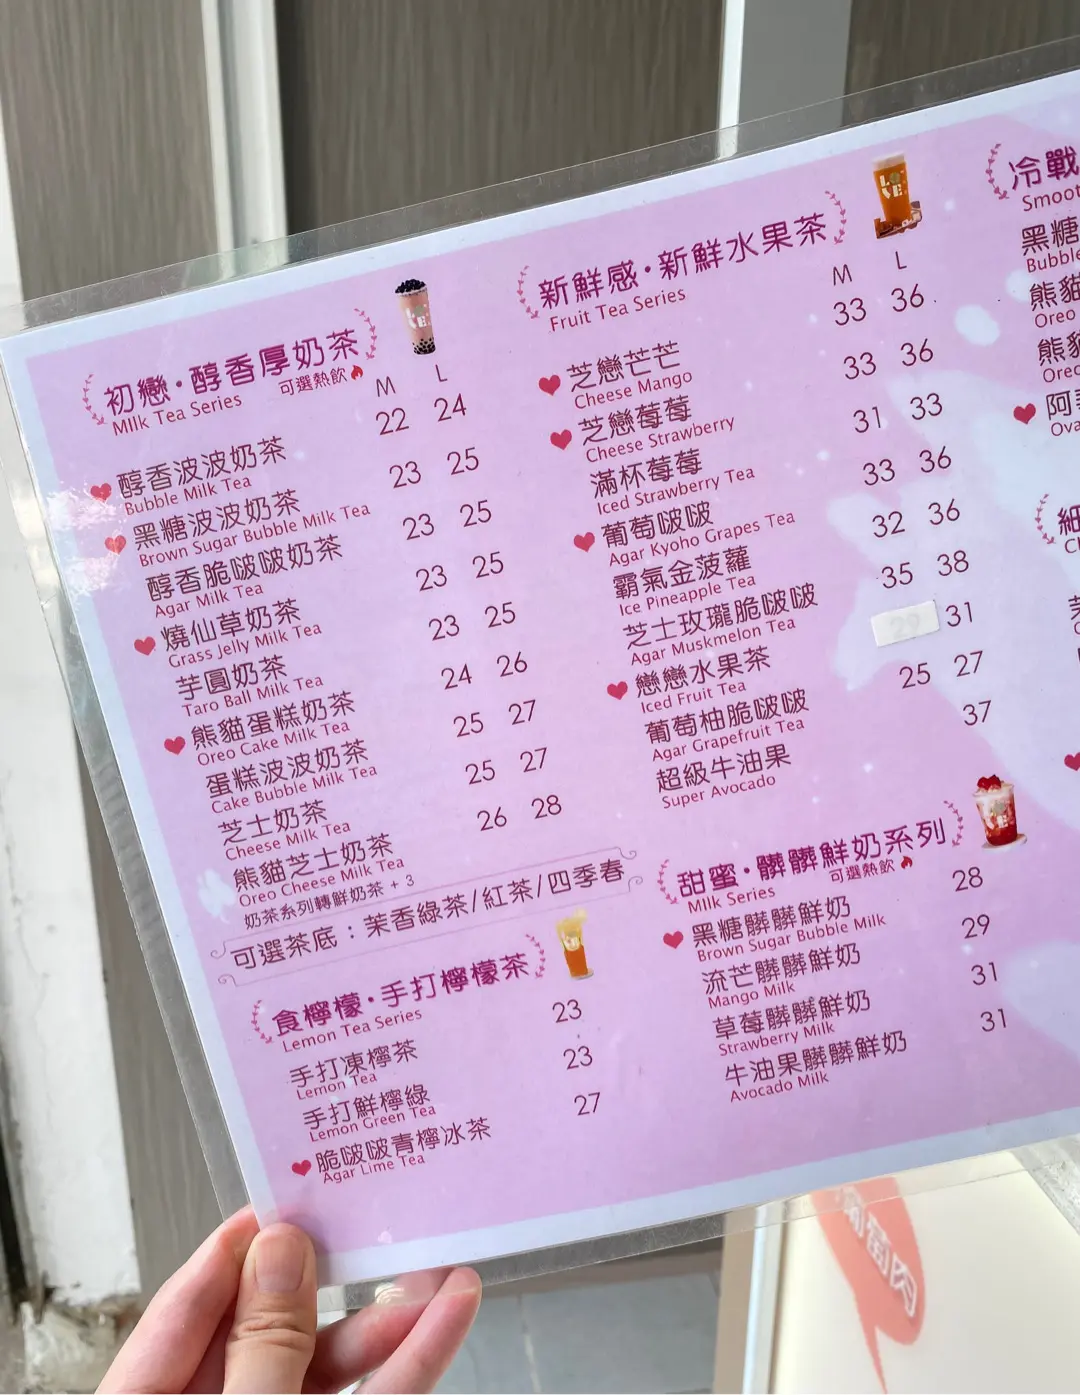 初戀·醇香厚奶茶
MIlk Tea Series 可選熱飲
M L
醇香波波奶茶 22 24
Bubble Milk Tea
黑糖波波奶茶 23 25
Brown Sugar Bubble Milk Tea
醇香脆啵啵奶茶 23 25
Agar Milk Tea
燒仙草奶茶 23 25
Grass Jelly Milk Tea
芋圓奶茶 23 25
Taro Ball Milk Tea
熊貓蛋糕奶茶 24 26
Oreo Cake Milk Tea
蛋糕波波奶茶 25 27
Cake Bubble Milk Tea
芝士奶茶 25 27
Cheese Milk Tea
熊貓芝士奶茶 26 28
Oreo Cheese Milk Tea
奶茶系列轉鮮奶茶 + 3
可選茶底：茉香綠茶/紅茶/四季春
食檸檬·手打檸檬茶
Lemon Tea Series
手打凍檸茶 23
Lemon Tea
手打鮮檸綠 23
Lemon Green Tea
脆啵啵青檸冰茶 27
Agar Lime Tea
新鮮感·新鮮水果茶
Fruit Tea Series
M L
芝戀芒芒 33 36
Cheese Mango
芝戀莓莓 33 36
Cheese Strawberry
滿杯莓莓 31 33
Iced Strawberry Tea
葡萄啵啵 33 36
Agar Kyoho Grapes Tea
霸氣金菠蘿 32 36
Ice Pineapple Tea
芝士玫瓏脆啵啵 35 38
Agar Muskmelon Tea
戀戀水果茶 29 31
Iced Fruit Tea
葡萄柚脆啵啵 25 27
Agar Grapefruit Tea
超級牛油果 37
Super Avocado
甜蜜·髒髒鮮奶系列
MIlk Series 可選熱飲
黑糖髒髒鮮奶 28
Brown Sugar Bubble Milk
流芒髒髒鮮奶 29
Mango Milk
草莓髒髒鮮奶 31
Strawberry Milk
牛油果髒髒鮮奶 31
Avocado Milk
冷戰
Smoot
黑糖
Bubble
熊貓
Oreo
熊貓
Oreo
阿
Ova
LOVE
葡萄肉